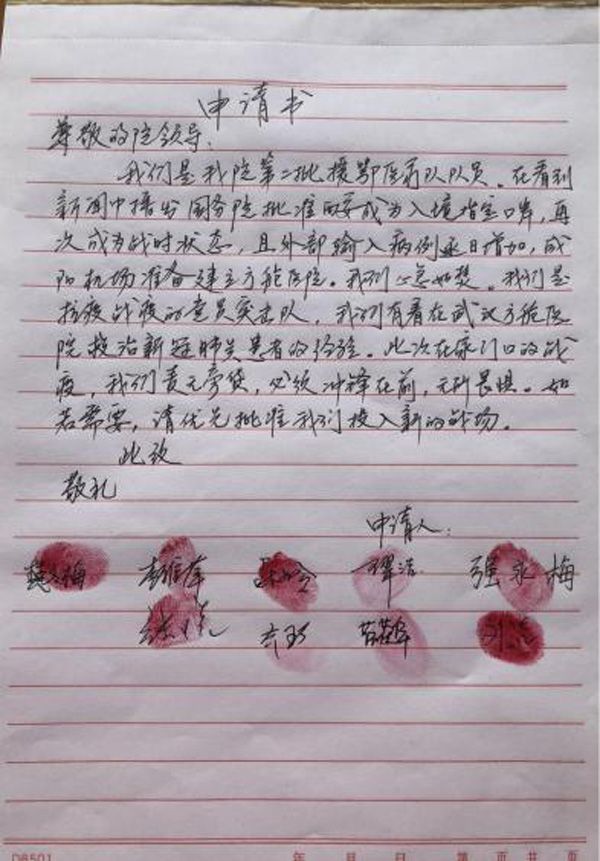 申请书
尊敬的院领导：
我们是我院第二批援鄂医疗队队员。在看到
新闻中播出国务院批准西安成为入境指定口岸，再
次成为战时状态，且外部输入病例逐日增加，咸
阳机场准备建立方舱医院。我们心急如焚。我们是
抗疫战疫的党员突击队，我们有着在武汉方舱医
院救治新冠肺炎患者的经验。此次在家门口的战
疫，我们责无旁贷，必须冲锋在前，无所畏惧。如
若需要，请优先批准我们投入新的战场。
此致
敬礼
申请人：
谭浩 强永梅
D8501 年 月 日 第 页共 页